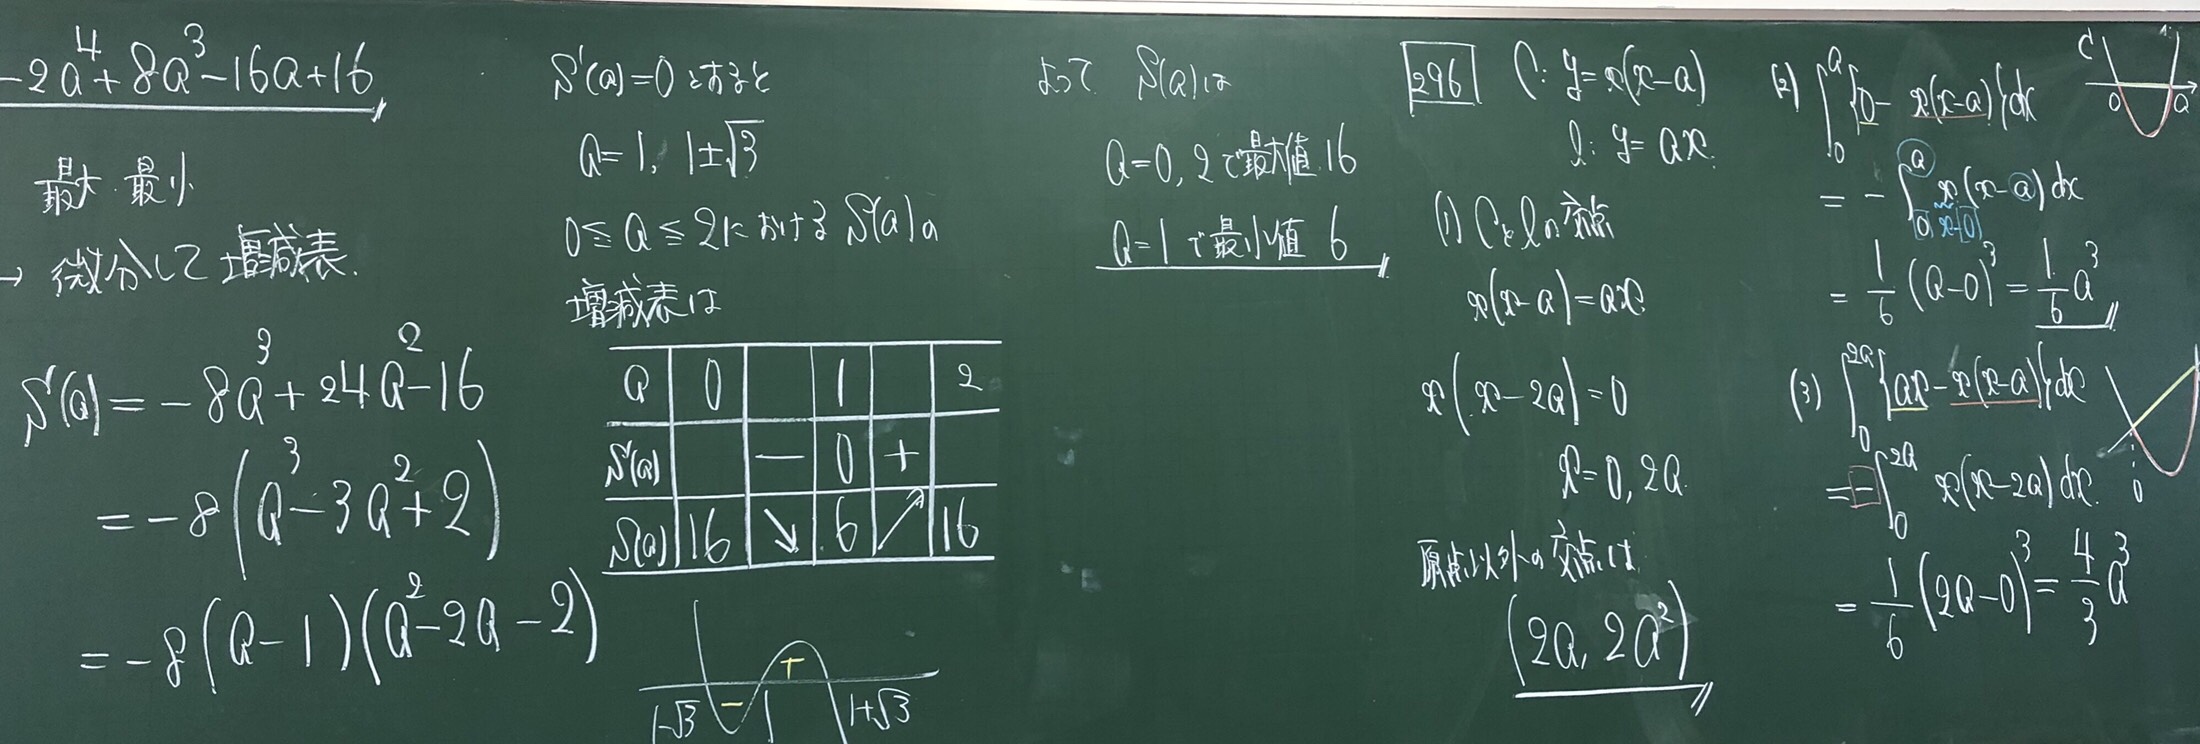 -2a⁴+8a³-16a+16
最大・最小
→ 微分して増減表.
S'(a)=-8a³+24a²-16
=-8(a³-3a²+2)
=-8(a-1)(a²-2a-2)
S'(a)=0とおすと
a=1, 1±√3
0≦a≦2における S(a)の
増減表は
a 0 1 2
S'(a) - 0 +
S(a) 16 ↘ 6 ↗ 16
- +
1-√3 1 1+√3
よって S(a)は
a=0, 2で最大値 16
a=1で最小値 6
296 C: y=x(x-a)
l: y=ax
(1) Cとlの交点
x(x-a)=ax
x(x-2a)=0
x=0, 2a
原点以外の交点は
(2a, 2a²)
(2) ∫₀ᵃ{0-x(x-a)}dx
=-∫₀ᵃ x(x-a)dx
0 x-0
=1/6(a-0)³=1/6a³
C
0 a
(3) ∫₀²ᵃ{ax-x(x-a)}dx
=-∫₀²ᵃ x(x-2a)dx
=1/6(2a-0)³=4/3a³
0